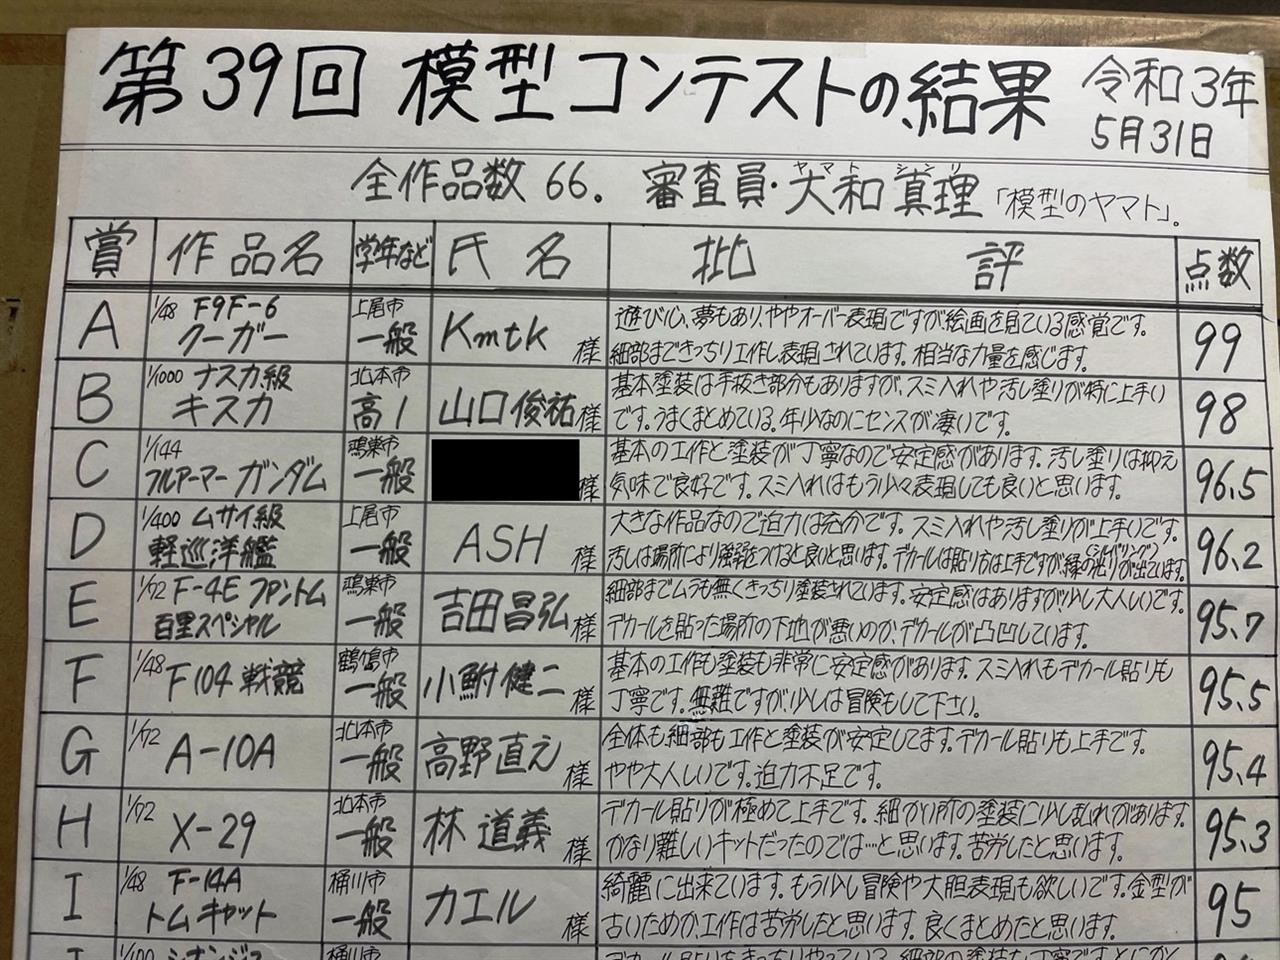 第39回 模型コンテストの結果 令和3年
5月31日
全作品数 66. 審査員・大和真理「模型のヤマト」.
ヤマト シンリ
賞 作品名 学年など 氏名 批評 点数
A 1/48 F9F-6 クーガー 上尾市 一般 Kmtk 様 99
遊び心、夢もあり、ややオーバー表現ですが絵画を見ている感覚です。
細部まできっちり工作し表現されています。相当な力量を感じます。
B 1/1000 ナスカ級 キスカ 北本市 高1 山口俊祐様 98
基本塗装は手抜き部分もありますが、スミ入れや汚し塗りが特に上手い
です。うまくまとめている。年少なのにセンスが凄いです。
C 1/144 フルアーマーガンダム 鴻巣市 一般 様 96.5
基本の工作と塗装が丁寧なので安定感があります。汚し塗りは抑え
気味で良好です。スミ入れはもう少々表現しても良いと思います。
D 1/400 ムサイ級 軽巡洋艦 上尾市 一般 ASH 様 96.2
大きな作品なので迫力は充分です。スミ入れや汚し塗りが上手いです。
汚しは場所により強弱をつけると良いと思います。デカールは貼り方は上手ですが、縁の光りが出ています。
E 1/72 F-4E ファントム 百里スペシャル 鴻巣市 一般 吉田昌弘様 95.7
細部までムラも無くきっちり塗装されています。安定感はありますが少し大人しいです。
デカールを貼った場所の下地が悪いのか、デカールが凸凹しています。
F 1/48 F104 戦競 鶴ヶ島市 一般 小鮒健二様 95.5
基本の工作も塗装も非常に安定感があります。スミ入れもデカール貼りも
丁寧です。無難ですが、少しは冒険もして下さい。
G 1/72 A-10A 北本市 一般 高野直之様 95.4
全体も細部も工作と塗装が安定してます。デカール貼りも上手です。
やや大人しいです。迫力不足です。
H 1/72 X-29 北本市 一般 林道義様 95.3
デカール貼りが極めて上手です。細かい所の塗装に少し乱れがあります。
かなり難しいキットだったのでは…と思います。苦労したと思います。
I 1/48 F-14A トムキャット 桶川市 一般 カエル 様 95
綺麗に出来ています。もう少し冒険や大胆表現も欲しいです。金型が
古いためか、工作は苦労したと思います。良くまとめたと思います。
1/100 シナンジュ 桶川市